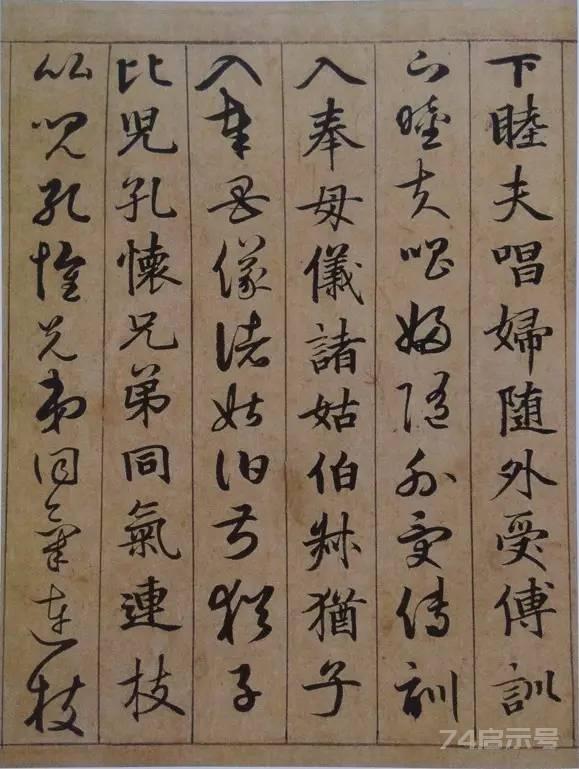 下睦夫唱婦随外受傅訓
下睦夫唱婦随外受傅訓
入奉母儀諸姑伯叔猶子
入奉母儀諸姑伯叔猶子
比児孔懐兄弟同氣連枝
比児孔懐兄弟同氣連枝
74启示号